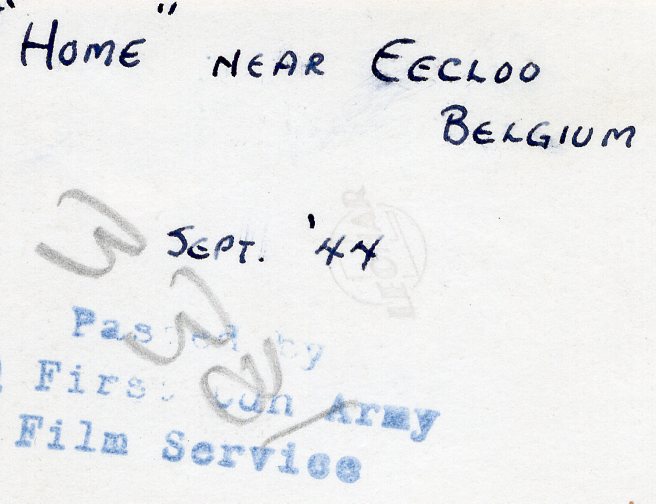 "HOME" NEAR EECLOO
BELGIUM
SEPT. '44
Passed by
First Cdn Army
Film Service